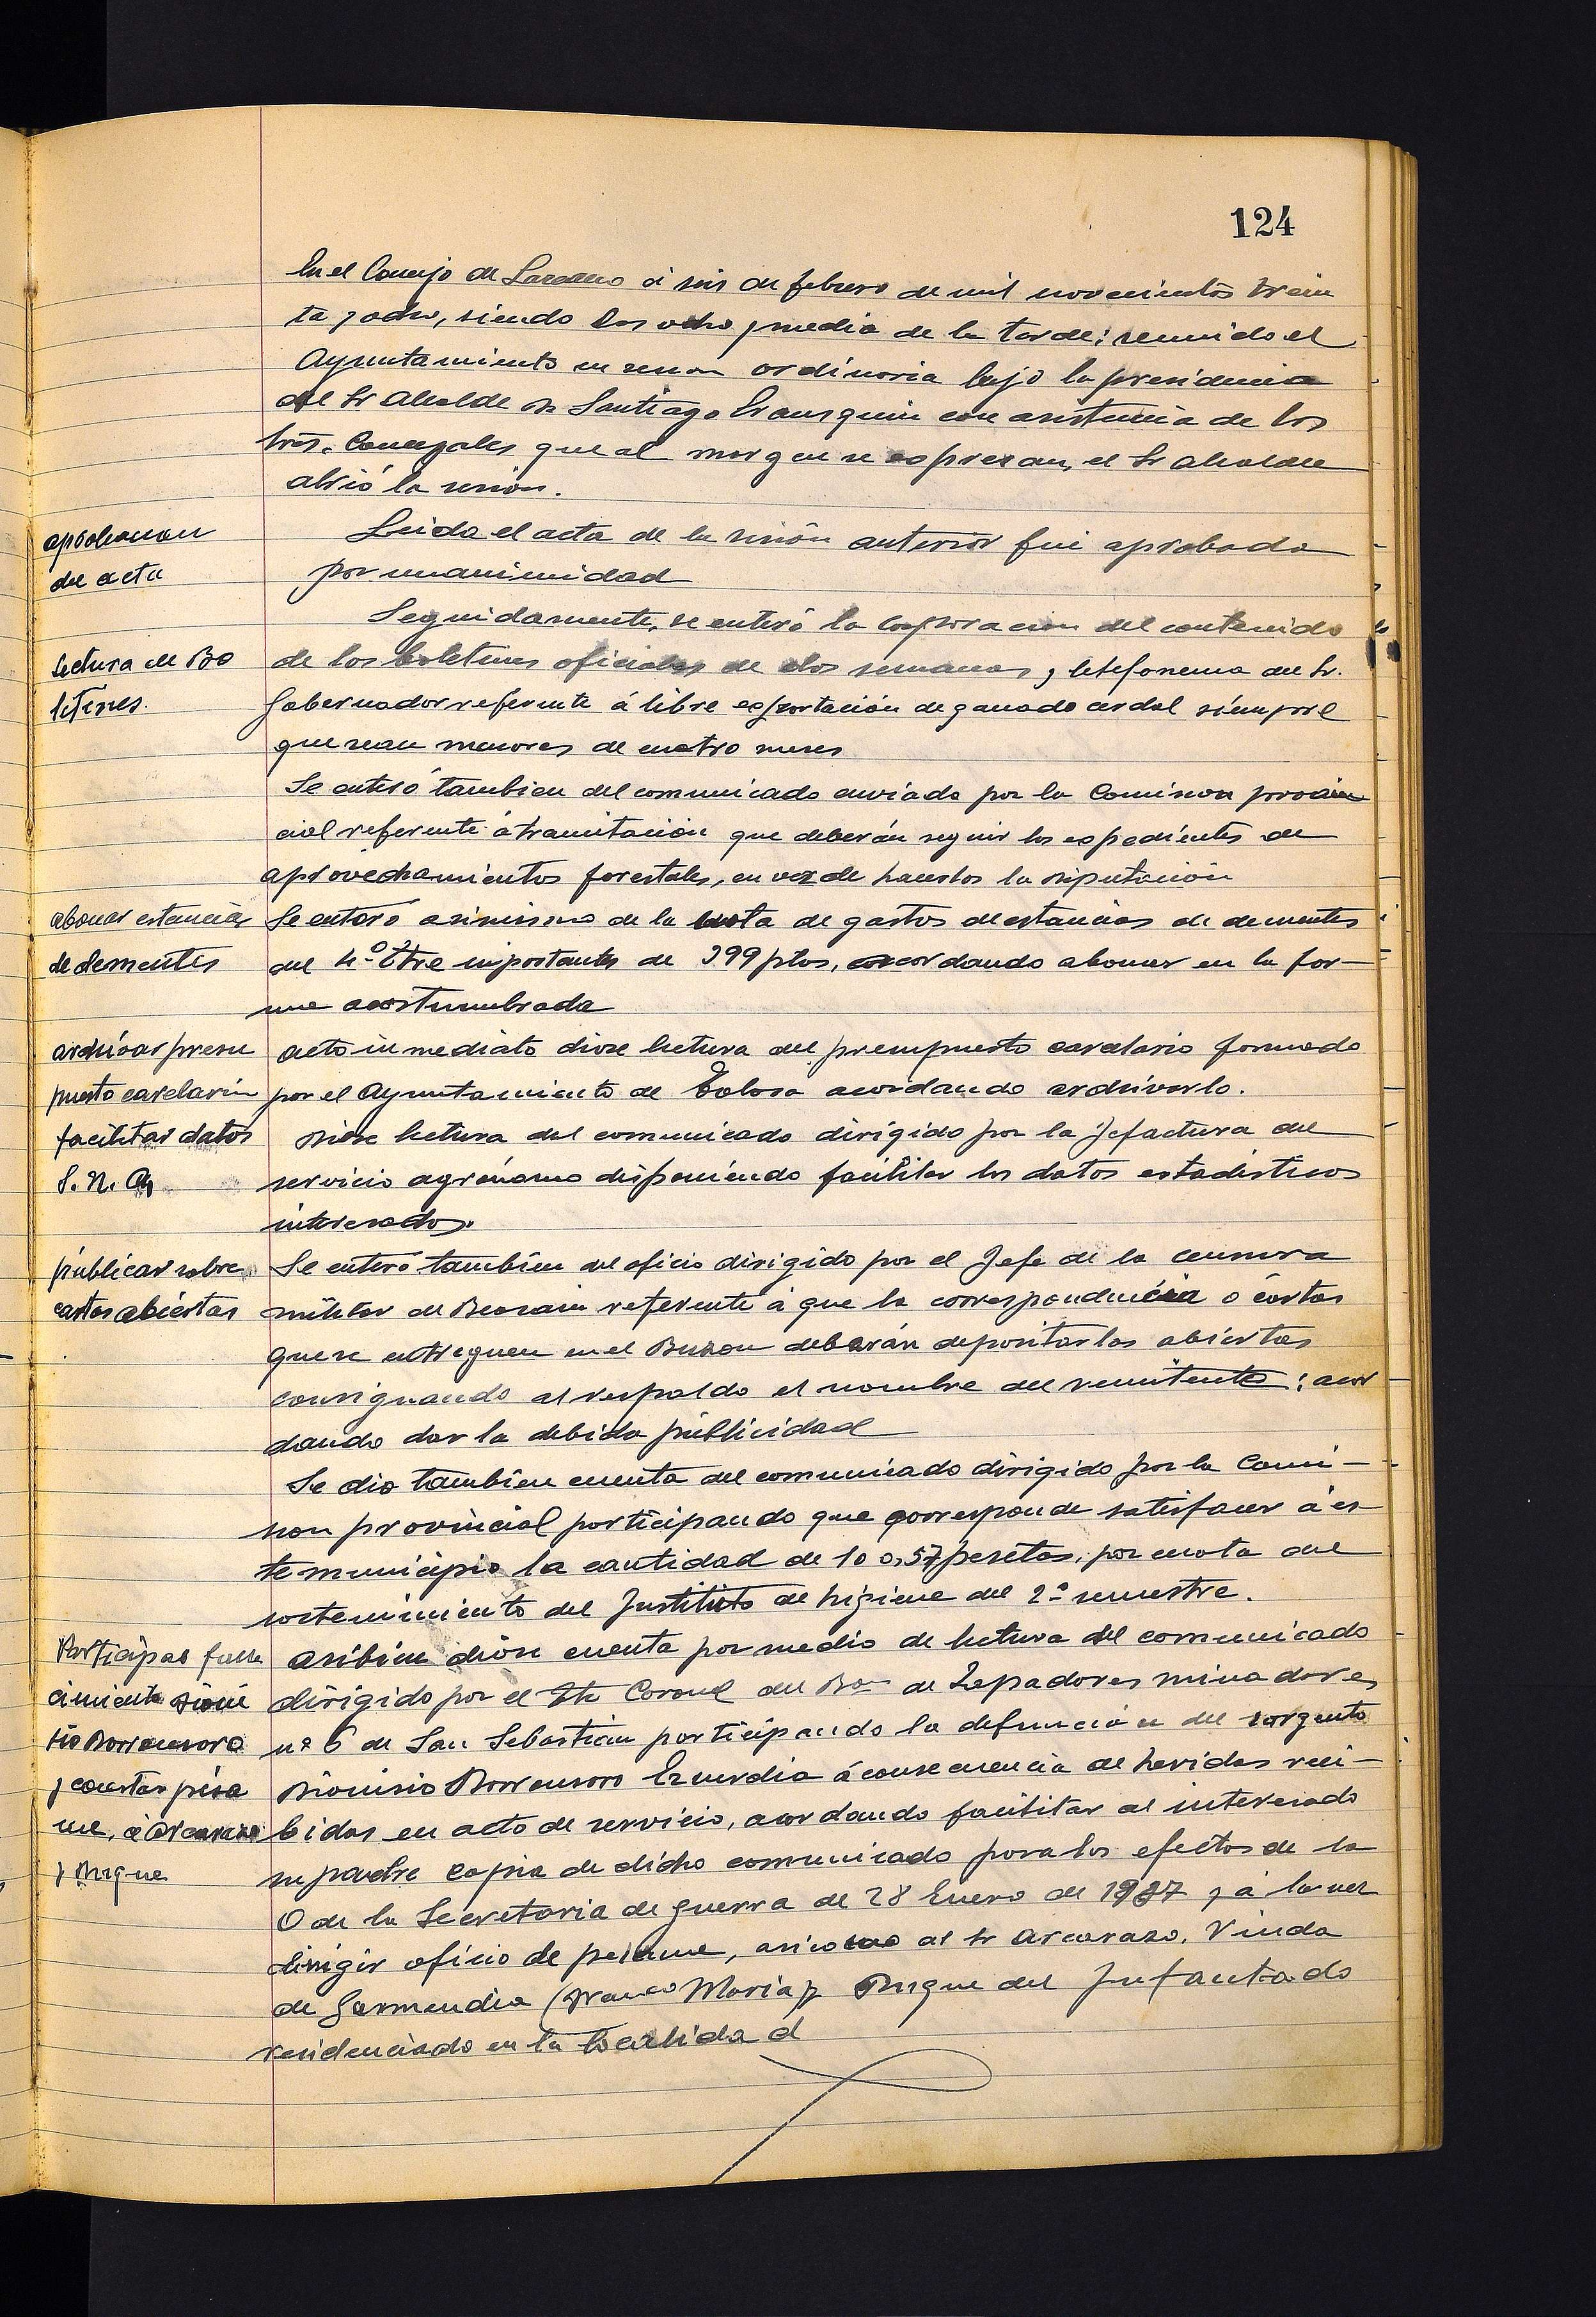 124
En el Concejo de Lazcano á seis de febrero de mil novecientos trein
ta y ocho, siendo las ocho y media de la tarde: reunido el
Ayuntamiento en sesion ordinaria bajo la presidencia
del Sr Alcalde Dn Santiago Irausquin con asistencia de los
Sres. Concejales que al margen se espresan, el Sr Alcalde
abrió la sesion.
aprobacion
del acta
Leida el acta de la sesión anterior fué aprobada
por unanimidad
lectura de Bo
letines.
Seguidamente, se enteró la corporacion del contenido
de los boletines oficiales de dos semanas, y telefonema del Sr.
Gobernador referente á libre esportación de ganado cerdal siempre
que sean menores de cuatro meses
Se enteró tambien del comunicado enviado por la Comision provin
cial referente á tramitación que deberán seguir los espedientes de
aprovechamientos forestales, en vez de hacerlos la Diputación
abonar estancias
de dementes
Se enteró asimismo de la nota de gastos de estancias de dementes
del 4º Etre importantes de 399 ptas, acordando abonar en la for-
ma acostumbrada
archivar presu
puesto carelario
acto inmediato diose lectura del presupuesto carelario formado
por el Ayuntamiento de Tolosa acordando archivarlo.
facilitar datos
S. N. A
Diose lectura del comunicado dirigido por la Jefactura del
servicio agrónomo disponiendo facilitar los datos estadísticos
interesados.
publicar sobre
cartas abiertas
Se enteró tambien del oficio dirigido por el Jefe de la censura
militar de Beasain referente á que la correspondencia ó cartas
que se entreguen en el Buzon deberán depositarlas abiertas
consignando al respaldo el nombre del remitente: acor
dando dar la debida publicidad
Se dio tambien cuenta del comunicado dirigido por la Comi-
sion provincial participando que corresponde satisfacer á es
te municipio la cantidad de 100,57 pesetas, por cuota del
sostenimiento del Instituto de higiene del 2º semestre.
Participar falle
cimiento Dioni
sio Borronsoro
y constar pésa
me, á Arcaraso
y Duque
asibien diose cuenta por medio de lectura del comunicado
dirigido por el Tte Coronel del Bon de Zapadores minadores
nº 6 de San Sebastian participando la defunción del sargento
Dionisio Borronsoro Ezcurdia á consecuencia de heridas reci-
bidas en acto de servicio, acordando facilitar al interesado
su padre copia de dicho comunicado para los efectos de la
O de la Secretaria de guerra de 28 Enero de 1937 y á la vez
dirigir oficio de pesame, asi como al Sr Arcaraso, Viuda
de Garmendia (Franco Maria) y Duque del Infantado
residenciado en la localidad